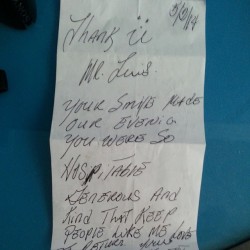 5/3/14
Thank ü
Mr. Luis.
Your smile made
our evening
you were so
Hospitable
Generous and
kind that keep
people like me